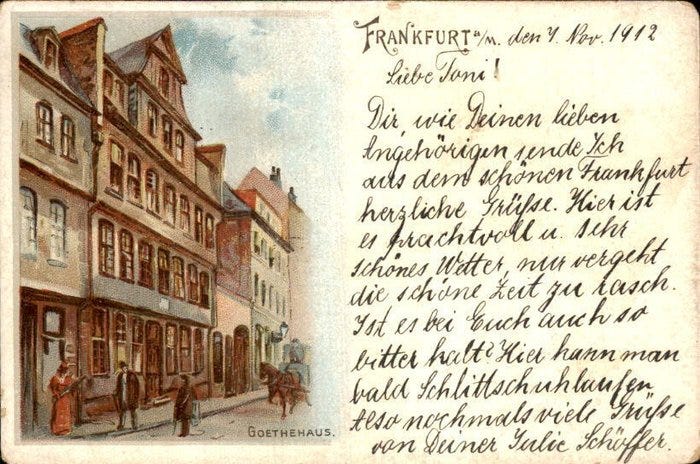 FRANKFURT a/M. den 7. Nov. 1912
Liebe Toni!
Dir, wie Deinen lieben
Angehörigen, sende Ich
aus dem schönen Frankfurt
herzliche Grüsse. Hier ist
es prachtvoll u. sehr
schönes Wetter, nur vergeht
die schöne Zeit zu rasch.
Ist es bei Euch auch so
bitter kalt? Hier kann man
bald Schlittschuhlaufen
Also nochmals viele Grüsse
von Deiner Julie Schöffer.
GOETHEHAUS.